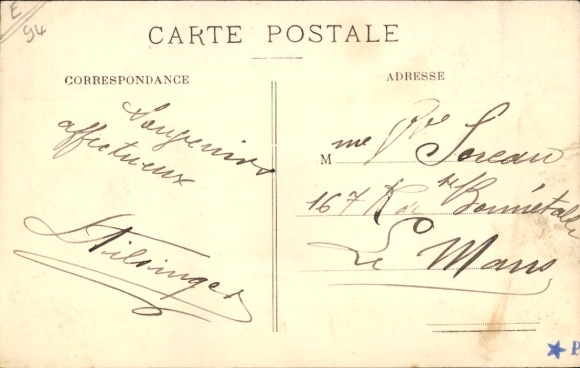 E
94
CARTE POSTALE
CORRESPONDANCE
Souvenirs
affectueux
ADRESSE
Mme Vve Soreau
167 Rte Bonnétable
Le Mans
P